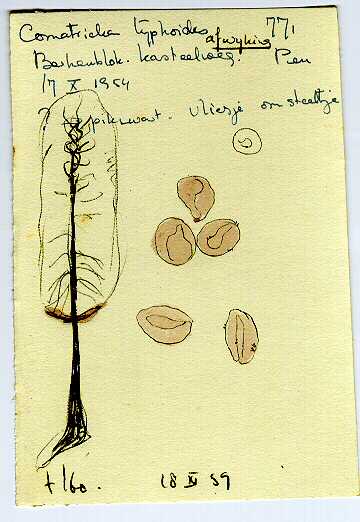 Comatricha typhoides afwyking 771
Beukenblok. Kasteelhoeg. Pen
17 X 1954
? pikzwart. vliesje om steeltje
± 160. 18 XI 59